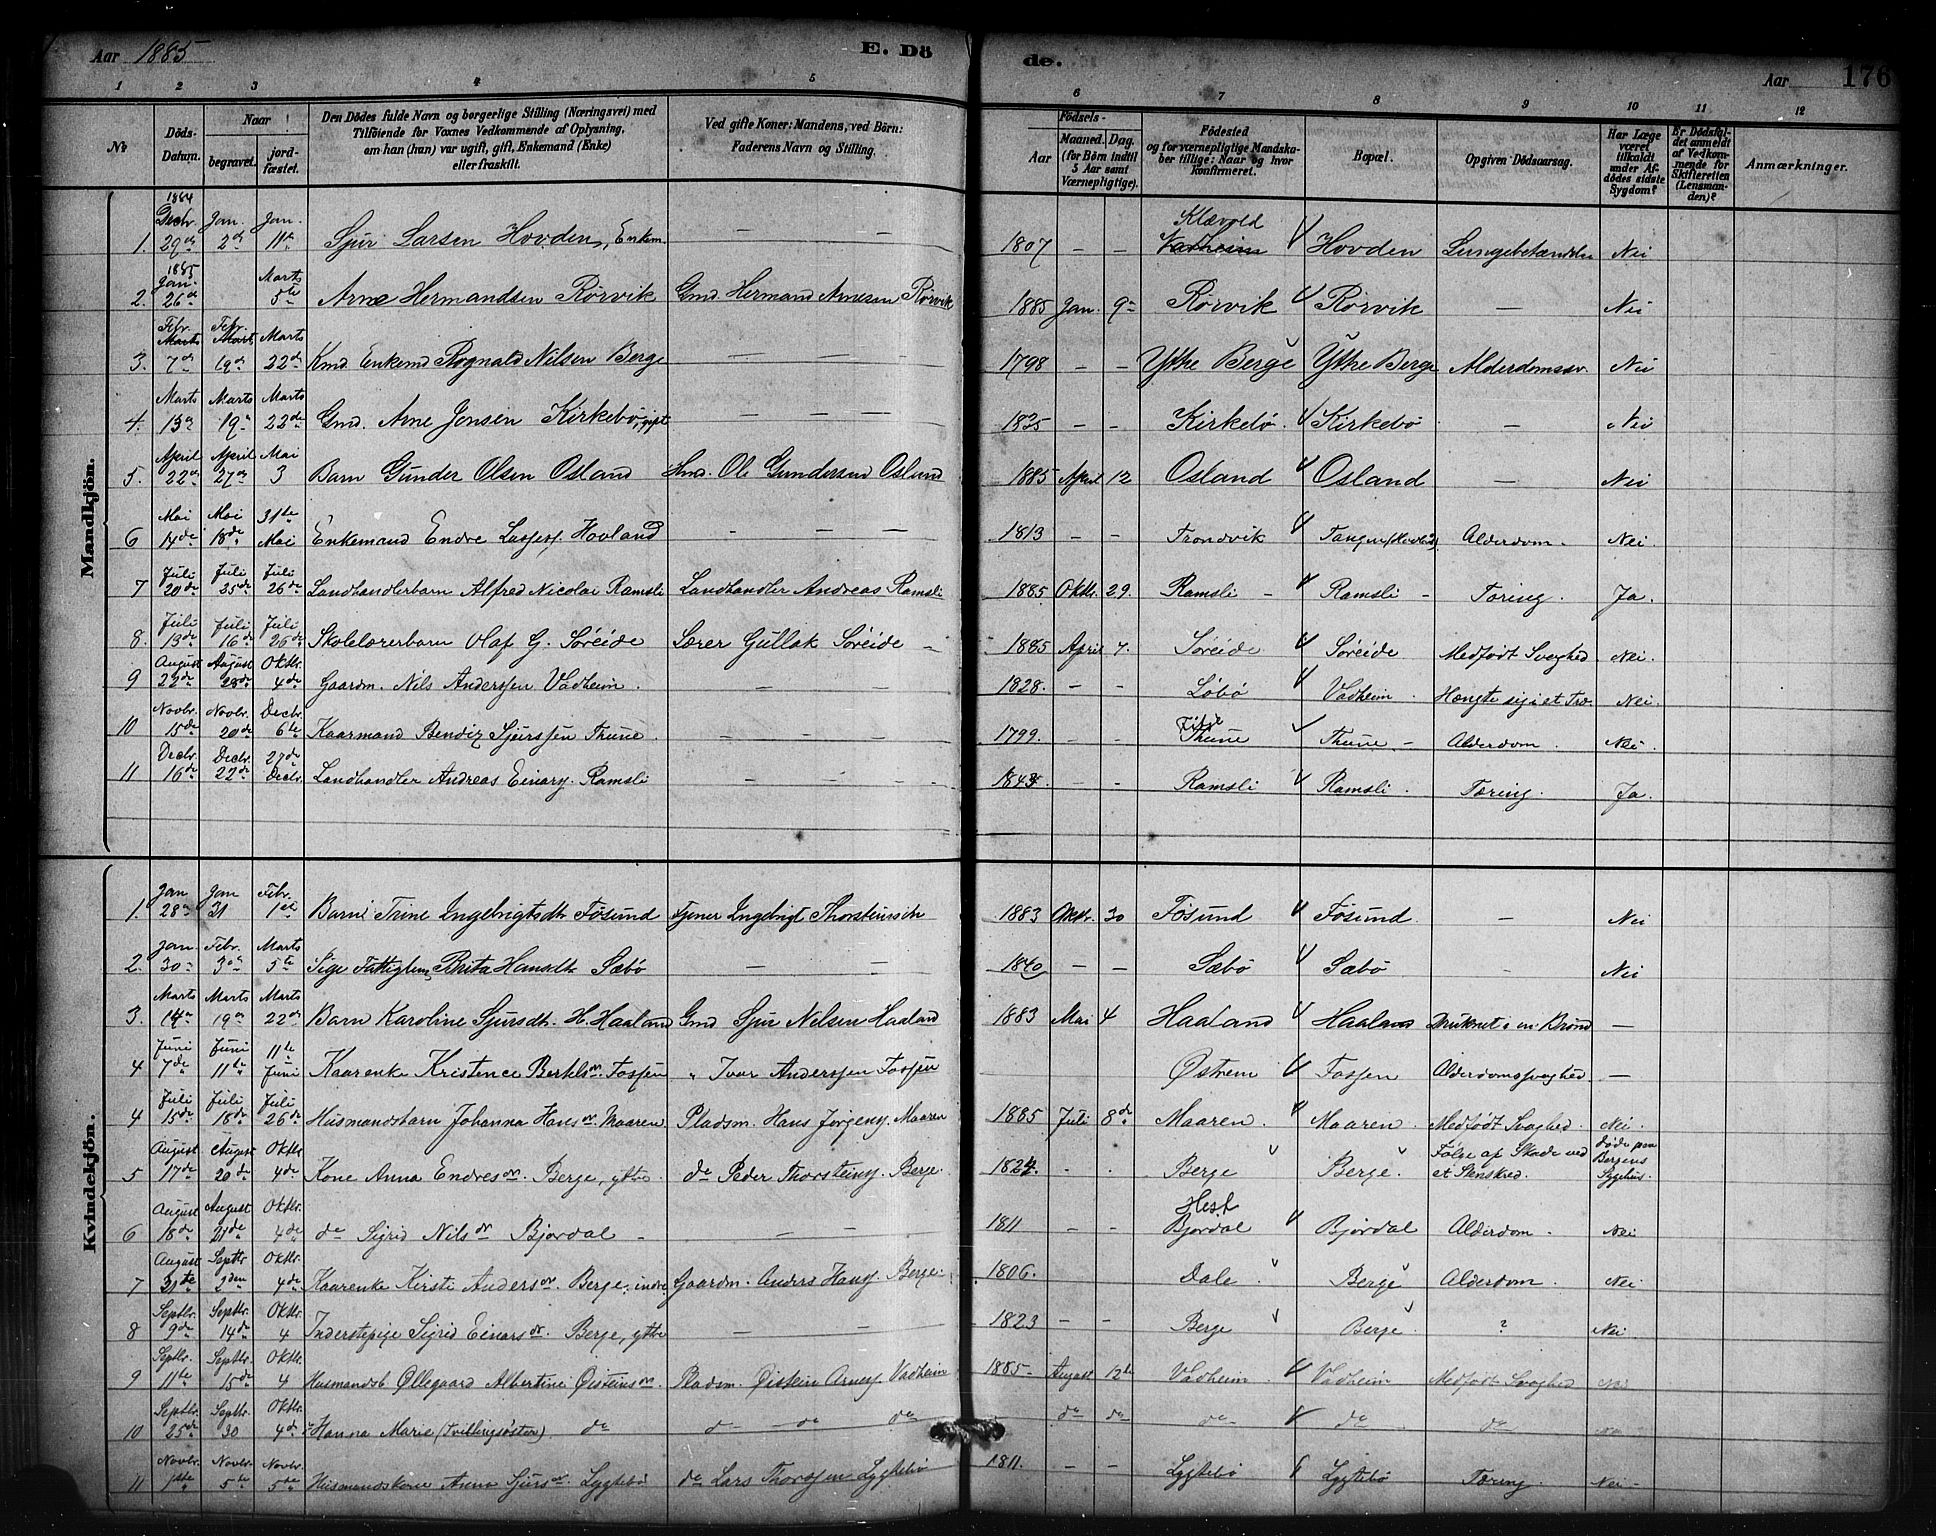 Aar 1885 E. Dö de. Aar 176
1 2 3 4 5 6 7 8 9 10 11 12
No Döds-Datum. Naar begravet. jord-fæstet. Den Dödes fulde Navn og borgerlige Stilling (Næringsvei) med Tilföiende for Voxnes Vedkommende af Oplysning, om han (hun) var ugift, gift, Enkemand (Enke) eller fraskilt. Ved gifte Koner: Mandens, ved Börn: Faderens Navn og Stilling. Födsels- Aar Maaned. Dag. (for Börn indtil 5 Aar samt Værnepligtige). Födested og for værnepligtige Mandskaber tillige: Naar og hvor konfirmeret. Bopæl. Opgiven Dödsaarsag. Har Læge været tilkaldt under Afdödes sidste Sygdom? Er Dödsfaldet anmeldt af Vedkommende for Skifteretten (Lensmanden)? Anmærkninger.
Mandkjön.
1. 1884 Decbr. 29de Jan. 2de Jan. 11te Sjur Larsen Hovden, Enkem. — — 1807 — — Klævold Vadheim Hovden Lungebetændelse Nei
2. 1885 Jan. 26de Marts 5te Arne Hermandsen Rörvik Gmd. Hermand Arnesen Rörvik 1885 Jan. 9- Rörvik Rörvik — Nei
3. Febr. Marts 7de Febr. Mart. 19de Marts 22de Kmd. Enkemd Rognald Nilsen Berge — — — 1798 — — Ytre Berge Ytre Berge Alderdomssv. Nei
4. Marts 13de Marts 19de Marts 22de Gmd. Arne Jensen Kirkebö, gift — — — 1825 — — Kirkebö. Kirkebö — Nei
5. April 22de April 27de Mai 3 Barn Gunder Olsen Osland Hmd. Ole Gundersen Osland 1885 April 12 Osland Osland — Nei
6 Mai 14de Mai 18de 31te Mai Enkemand Endre Lassess. Hovland — — — 1813 — — Trondvik Tangen (Hovland) Alderdom. Nei.
7 Juli 20de Juli 25de Juli 26de Landhandlerbarn Alfred Nicolai Ramsli Landhandler Andreas Ramsli 1885 Oktbr. 29. Ramsli — Ramsli — Tæring. Ja.
8. Juli 13de Juli 16de Juli 26de Skolelærerbarn Olaf G. Söreide Lærer Gullak Söreide 1885 April 7. Söreide Söreide Medfödt Svaghed. Nei.
9 August 22de August 28de Oktbr. 4de Gaardm. Nils Anderssen Vadheim. — — — 1828. — — Löbö Vadheim. Hængte sig i et Træ. Nei.
10 Novbr. 15de Novbr. 20de Decbr. 6te Kaarmand Bendix Sjurssen Thune. — — — 1799. — — Thune Thune — Alderdom. Nei.
11 Decbr. 16de Decbr. 22de 27de Decbr. Landhandler Andreas Einars. Ramsli — — — 1843. — — Ramsli Ramsli. Tæring. Ja.
Kvindekjön.
1. Jan 28de Jan 31 Febr. 1ste Barnet Trine Ingebrigtsdtr. Fösund Tjener Ingebrigt Thorsteinssen 1883 Oktbr. 30 Fösund Fösund. — Nei
2. Jan. 30de Febr. 3de Marts 5te Pige Fattiglem Brita Hansdtr. Sæbö — — 1840 — — Sæbö Sæbö Nei
3. Marts 14de Marts 19de Marts 22de Barn Karoline Sjursdtr. H. Haaland Gmd Sjur Nelsen Haaland 1883 Mai 4 Haaland Haaland Druknet i en Brönd —
4 Juni 7de Juni 11te 11te Juni Kaarenke Kristence Bertelsdr. Fossen „ Ivar Anderssen Fossen Østrem Fossen Alderdomssvaghed. —
4 Juli 15de Juli 18de Juli 26de Husmandsbarn Johanna Hansdr. Maaren Pladsm. Hans Jörgens. Maaren 1885 Juli 8de Maaren. Maaren. Medfödt Svaghed. Nei.
5 August 17de August 20de Oktbr. 4de Kone Anna Endresdr. Berge, ytre do Peder Thorsteins. Berge. 1824. - - Berge Berge. Fölge af Skade ved et Stenskred. döde paa Bergens Sygehus.
6 August 18de August 21de Oktbr. 4de do Sigrid Nilsdr Bjordal — — — 1811 — — Hest Bjordal Bjordal Alderdom. Nei
7 August 31te Septbr. 2den Oktbr. 4de Kaarenke Kirsti Andersdr. Berge, indre Gaardm. Anders Hans. Berge. 1806. Dale. Berge Alderdom. Nei
8 Septbr. 9de Septbr. 14de Oktbr. 4 Inderstepige Sigrid Einarsdr. Berge, ytre — — 1823 — — Berge Berge. ? Nei.
9 Septbr. 11te Septbr. 15de Oktbr. 4 Husmandsb. Øllegaard Albertine Øisteinsdr. Pladsm. Øistein Arnes. Vadheim 1885- August 12te Vadheim. Vadheim Medfödt Svaghed Nei
10 Septbr. 25de Septbr. 30 Oktbr. 4de Hanna Marie (Tvillingsöster) do do — do do do do do do do Nei
11 Novbr. 1ste Novbr. 5te Novbr. 5te Husmandskone Anna Sjursdr. Lygtebö do Lars Thorssen Lygtebö 1811. — — Lygtebö Lygtebö Tæring. Nei -